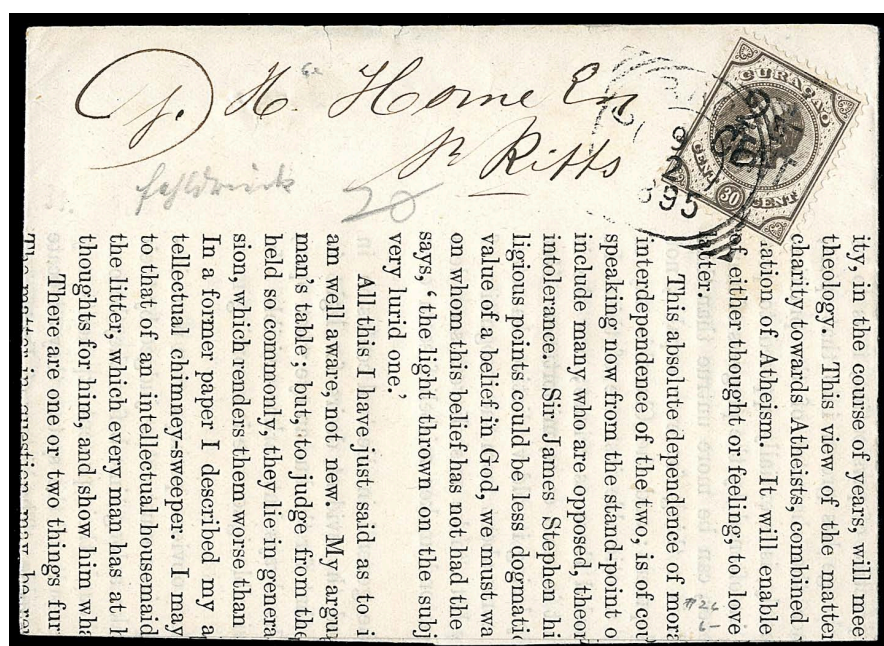 H. Horne Esq
St Kitts
fehldruck
20
CURAÇAO
30
CENT
CENT
9
2
895
#26
6-
ity, in the course of years, will mee
theology. This view of the matter
charity towards Atheists, combined
ation of Atheism. It will enable
of either thought or feeling, to love
latter.
This absolute dependence of mora
interdependence of the two, is of cou
speaking now from the stand-point o
include many who are opposed, theor
intolerance. Sir James Stephen hi
ligious points could be less dogmatic
value of a belief in God, we must wa
on whom this belief has not had the
says, ‘the light thrown on the subj
very lurid one.’
All this I have just said as to i
am well aware, not new. My argu
man's table; but, to judge from the
held so commonly, they lie in genera
sion, which renders them worse than
In a former paper I described my a
tellectual chimney-sweeper. I may
to that of an intellectual housemaid
the litter, which every man has at h
thoughts for him, and show him wha
There are one or two things fur
The matter in question may be re